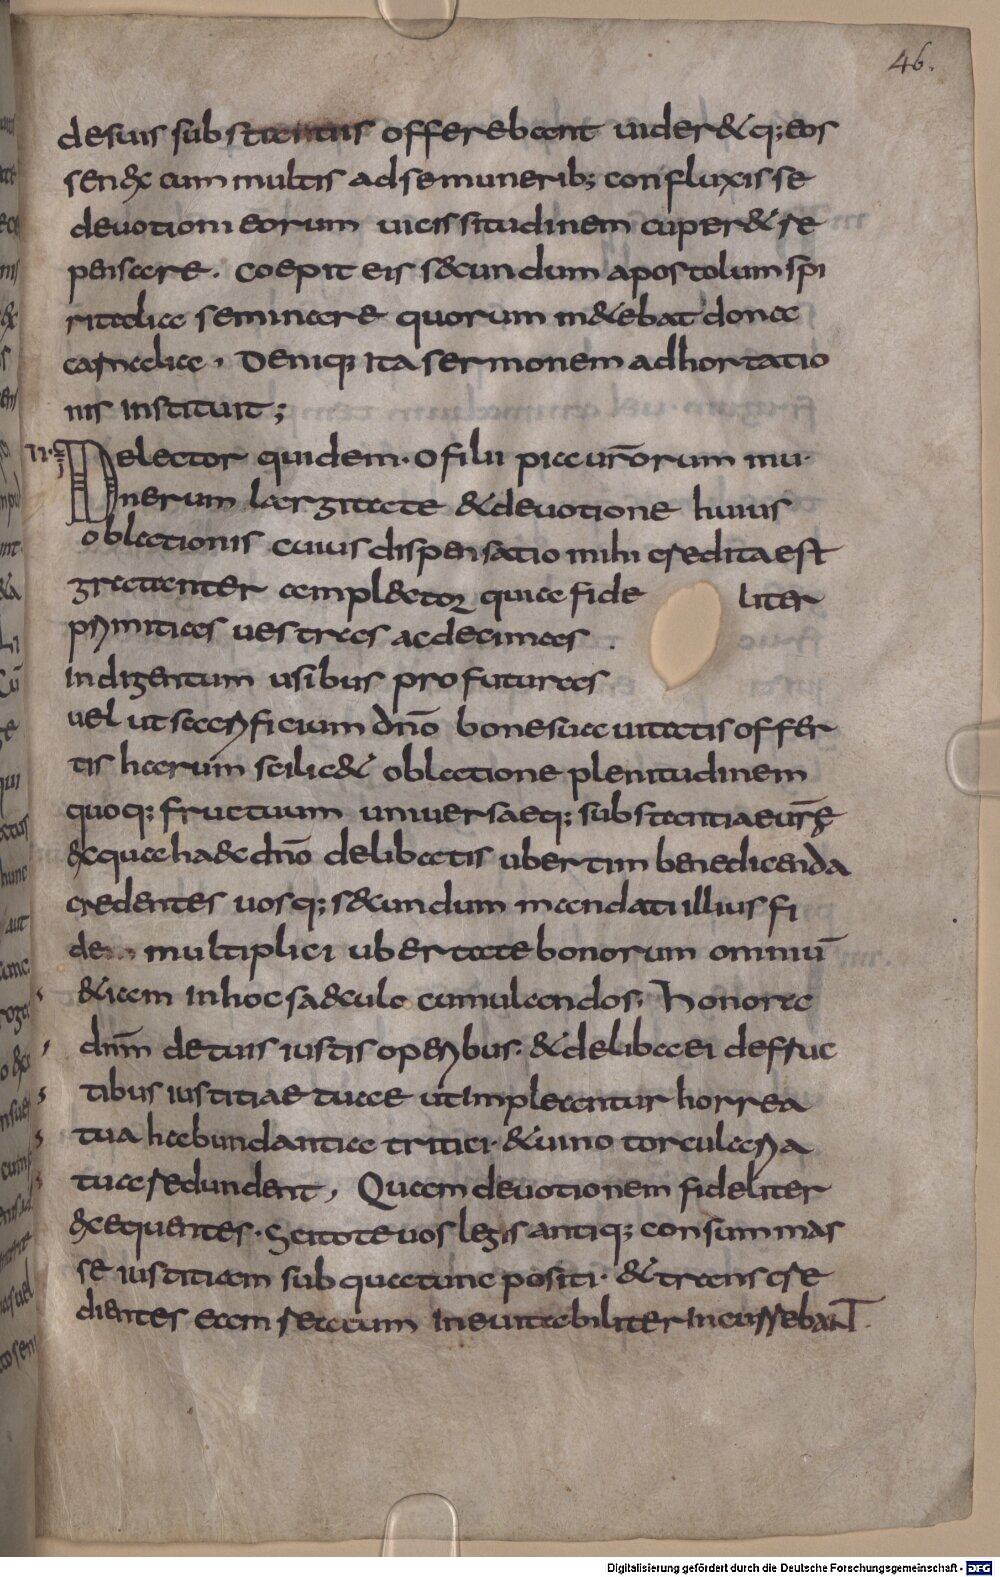 46.
desuis substantiis offerebant uider&q; eos
sen&x cum multis adsemunerib; confluxisse
deuotioni eorum uicissitudinem cuper& re
pensare. Coepit eis s&cundum apostolum spi
ritalia seminare quorum m&ebat dona
carnalia, Deniq; ita sermonem adhortatio
nis instituit;
Delector quidem. o filii piaurōrum mu
nerum largitate & deuotione huius
oblationis cuius dispensatio mihi credita est
gratanter ampl&cor quia fide liter
primitias uestras ac decimas
indigentum usibus profuturas
uel ut sacrificium dn̄o bonesuauitatis offer
tis harum scilic& oblatione plenitudinem
quoq; fructuum uniuersaeq; substantiae ur̄ę
&xqua haec dn̄o delibatis ubertim benedicenda
credentes uosq; s&cundum mandati illius fi
dem multiplici ubertate bonorum omniū
&iam inhoc saeculo cumulandos, honora
dnm̄ detuis iustis operibus. & deliba ei defruc
tibus iustitiae tuae ut impleantur horrea
tua habundantia tritici. & uino torcularia
tua redundent, Quam deuotionem fideliter
&xequentes. Scitote uos legis antiq; consummas
se iustitiam sub qua tunc positi. & transgre
dientes eam reatum ineuitabiliter incurrebant
Digitalisierung gefördert durch die Deutsche Forschungsgemeinschaft - DFG